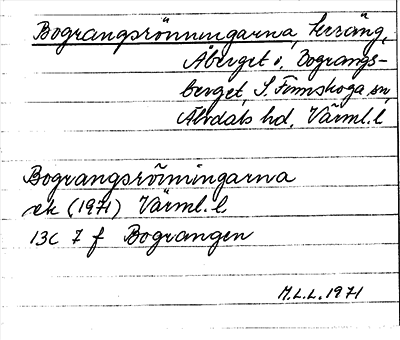 Bograngsrönningarna, terräng,
Åberget o. Bograngs-
berget, S. Finnskoga sn,
Älvdals hd, Värml. l
Bograngsrönningarna
ek (1971) Värml. l
13C 7 f Bograngen
M.L.L. 1971